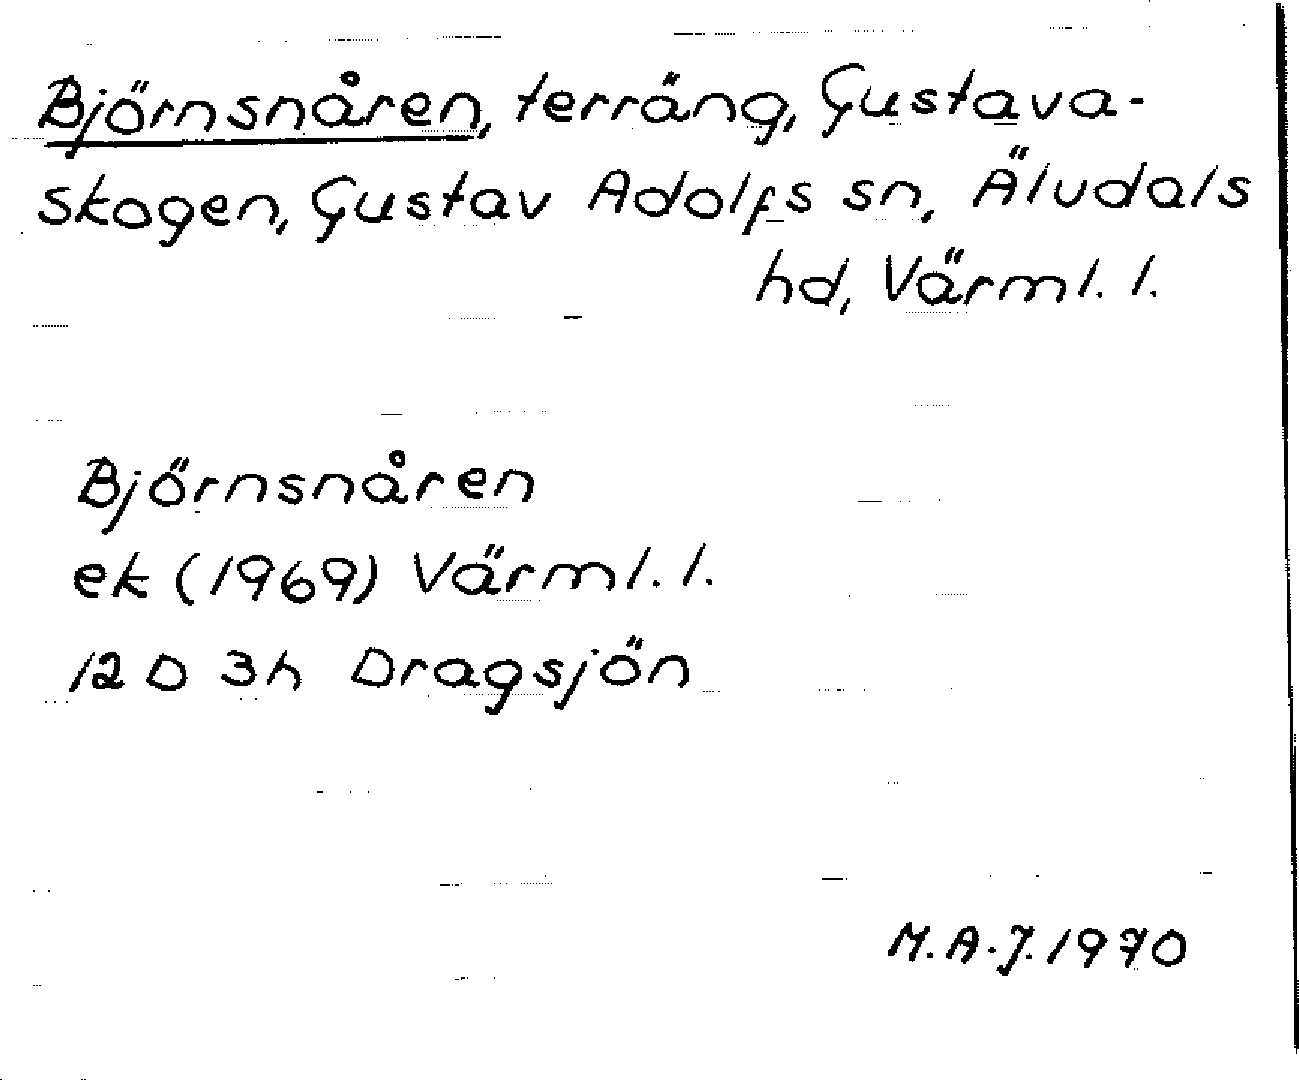 Björnsnåren, terräng, Gustava-
skogen, Gustav Adolfs sn, Äludals
hd, Värml. l.
Björnsnåren
ek (1969) Värml. l.
12 D 3h Dragsjön
M.A.J. 1970